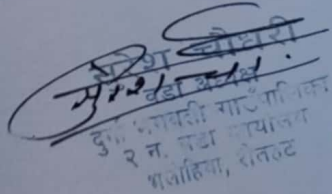 सुरेश चौधरी
वडा अध्यक्ष
दुर्गा भगवती गाउँपालिका
२ न. वडा कार्यालय
भलोहिया, रौतहट